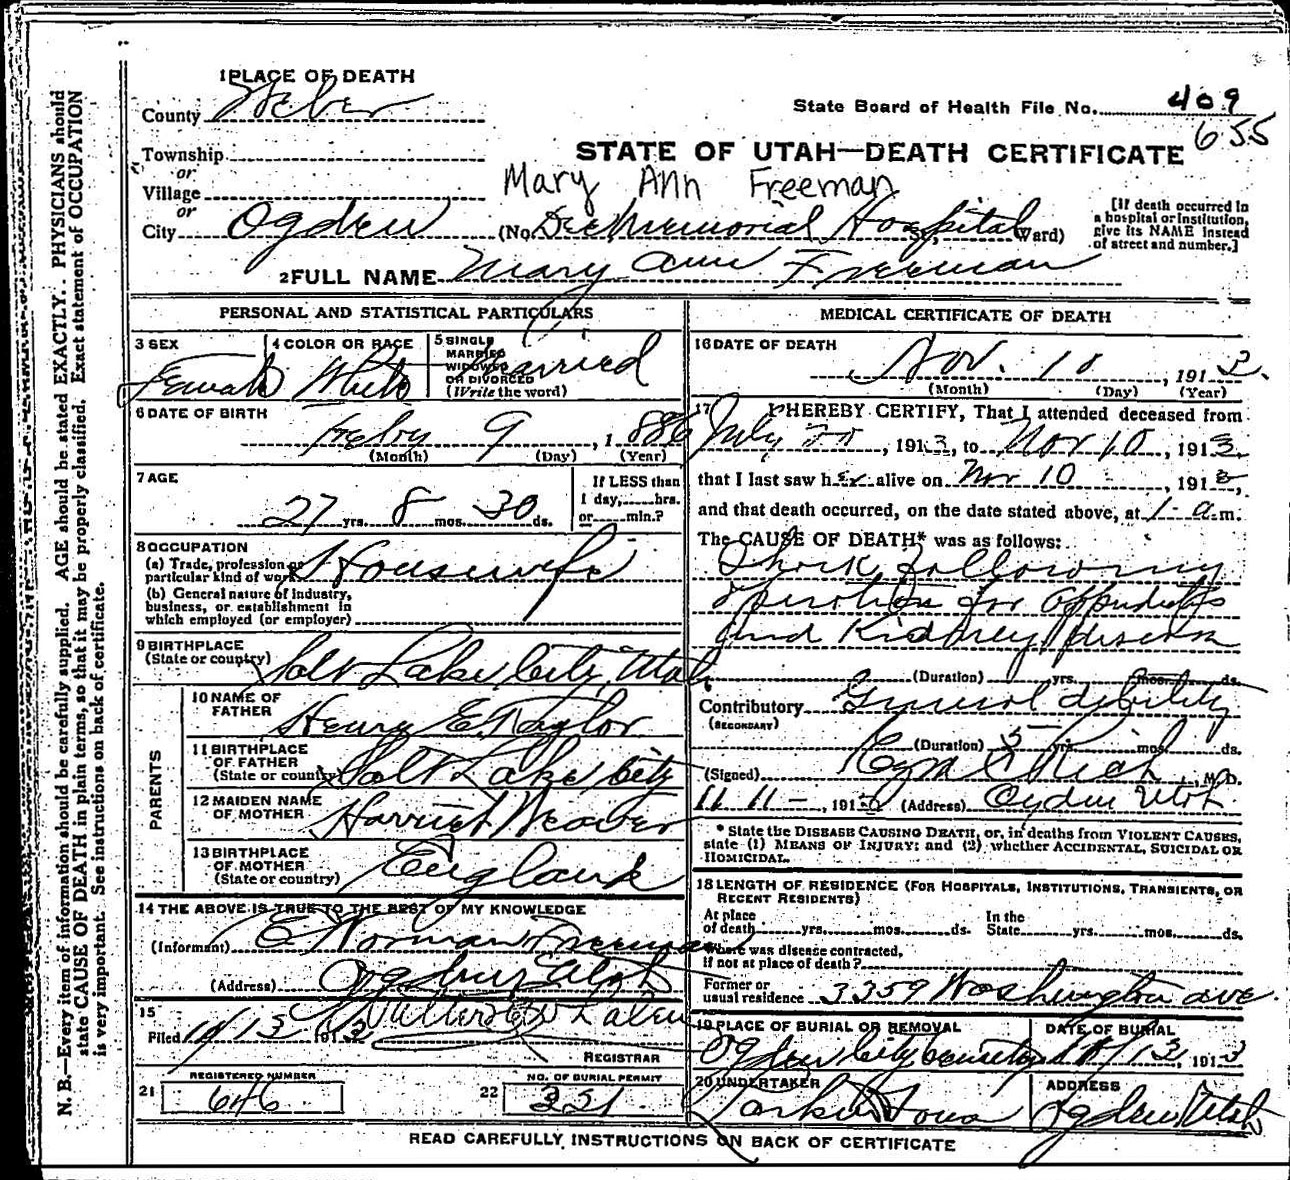 1 PLACE OF DEATH
County Weber
State Board of Health File No. 409
655
Township
or
Village
or
City Ogden
STATE OF UTAH—DEATH CERTIFICATE
Mary Ann Freeman
(No. Dee Memorial Hospital St., Ward)
[If death occurred in
a hospital or institution,
give its NAME instead
of street and number.]
2 FULL NAME Mary Ann Freeman
PERSONAL AND STATISTICAL PARTICULARS
3 SEX
Female
4 COLOR OR RACE
White
5 SINGLE
MARRIED
WIDOWED
OR DIVORCED
(Write the word)
Married
6 DATE OF BIRTH
Feby 9, 1886
(Month) (Day) (Year)
7 AGE
27 yrs. 8 mos. 30 ds.
If LESS than
1 day, hrs.
or min.?
8 OCCUPATION
(a) Trade, profession or
particular kind of work Housewife
(b) General nature of industry,
business, or establishment in
which employed (or employer)
9 BIRTHPLACE
(State or country) Salt Lake City, Utah
PARENTS
10 NAME OF
FATHER Henry E. Naylor
11 BIRTHPLACE
OF FATHER
(State or country) Salt Lake City
12 MAIDEN NAME
OF MOTHER Harriet Weaver
13 BIRTHPLACE
OF MOTHER
(State or country) England
14 THE ABOVE IS TRUE TO THE BEST OF MY KNOWLEDGE
(Informant) E Norman Freeman
(Address) Ogden Utah
15
Filed 11/13 1913
REGISTRAR
21 REGISTERED NUMBER
646
22 NO. OF BURIAL PERMIT
321
MEDICAL CERTIFICATE OF DEATH
16 DATE OF DEATH
Nov. 10, 1913.
(Month) (Day) (Year)
17 I HEREBY CERTIFY, That I attended deceased from
July, 1913, to Nov 10, 1913,
that I last saw her alive on Nov 10, 1913,
and that death occurred, on the date stated above, at 1 a.m.
The CAUSE OF DEATH* was as follows:
Shock following
operation for Appendicitis
and Kidney
(Duration) yrs. mos. ds.
Contributory General debility
(SECONDARY)
(Duration) 5 yrs. mos. ds.
(Signed) Rich, M.D.
11 11 —, 1913 (Address) Ogden Utah
* State the DISEASE CAUSING DEATH, or, in deaths from VIOLENT CAUSES,
state (1) MEANS OF INJURY; and (2) whether ACCIDENTAL, SUICIDAL OR
HOMICIDAL.
18 LENGTH OF RESIDENCE (FOR HOSPITALS, INSTITUTIONS, TRANSIENTS, OR
RECENT RESIDENTS)
At place
of death yrs. mos. ds.
In the
State yrs. mos. ds.
Where was disease contracted,
if not at place of death?
Former or
usual residence 3359 Washington ave.
19 PLACE OF BURIAL OR REMOVAL
Ogden City Cemetery
DATE OF BURIAL
11/13, 1913
20 UNDERTAKER
ADDRESS
Ogden Utah
READ CAREFULLY INSTRUCTIONS ON BACK OF CERTIFICATE
N. B.—Every item of information should be carefully supplied. AGE should be stated EXACTLY. PHYSICIANS should
state CAUSE OF DEATH in plain terms, so that it may be properly classified. Exact statement of OCCUPATION
is very important. See instructions on back of certificate.